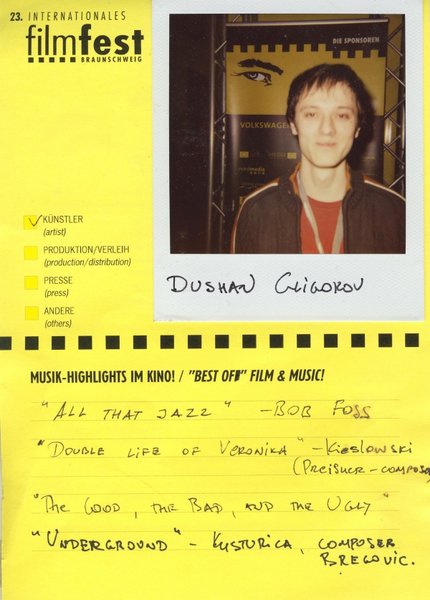 23. INTERNATIONALES
filmfest
BRAUNSCHWEIG
DIE SPONSOREN
VOLKSWAGEN
nordmedia
KÜNSTLER
(artist)
PRODUKTION/VERLEIH
(production/distribution)
PRESSE
(press)
ANDERE
(others)
DUSHAN GLIGOROV
MUSIK-HIGHLIGHTS IM KINO! / "BEST OF" FILM & MUSIC!
"ALL THAT JAZZ" - BOB FOSS
"DOUBLE LIFE OF VERONIKA" - KIESLOWSKI
(PREISNER - COMPOSER
"THE GOOD, THE BAD, AND THE UGLY"
"UNDERGROUND" - KUSTURICA, COMPOSER
BREGOVIC.